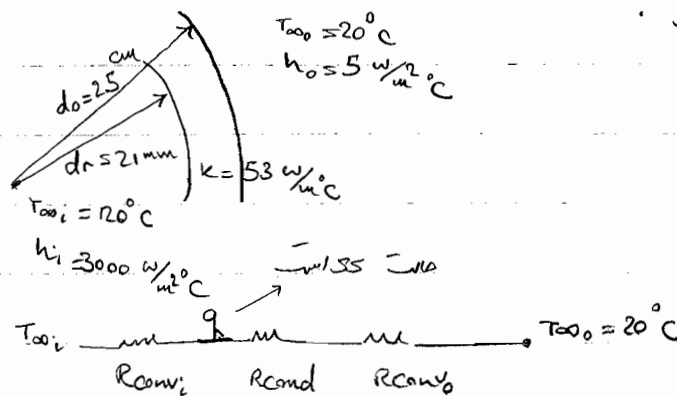 T∞o = 20°C
h_o = 5 w/m²°C
d_o = 25 cm
d_r = 21 mm
K = 53 w/m°C
T∞i = 120°C
h_i = 3000 w/m²°C
q
T∞i
T∞o = 20°C
Rconv_i Rcond Rconv_o